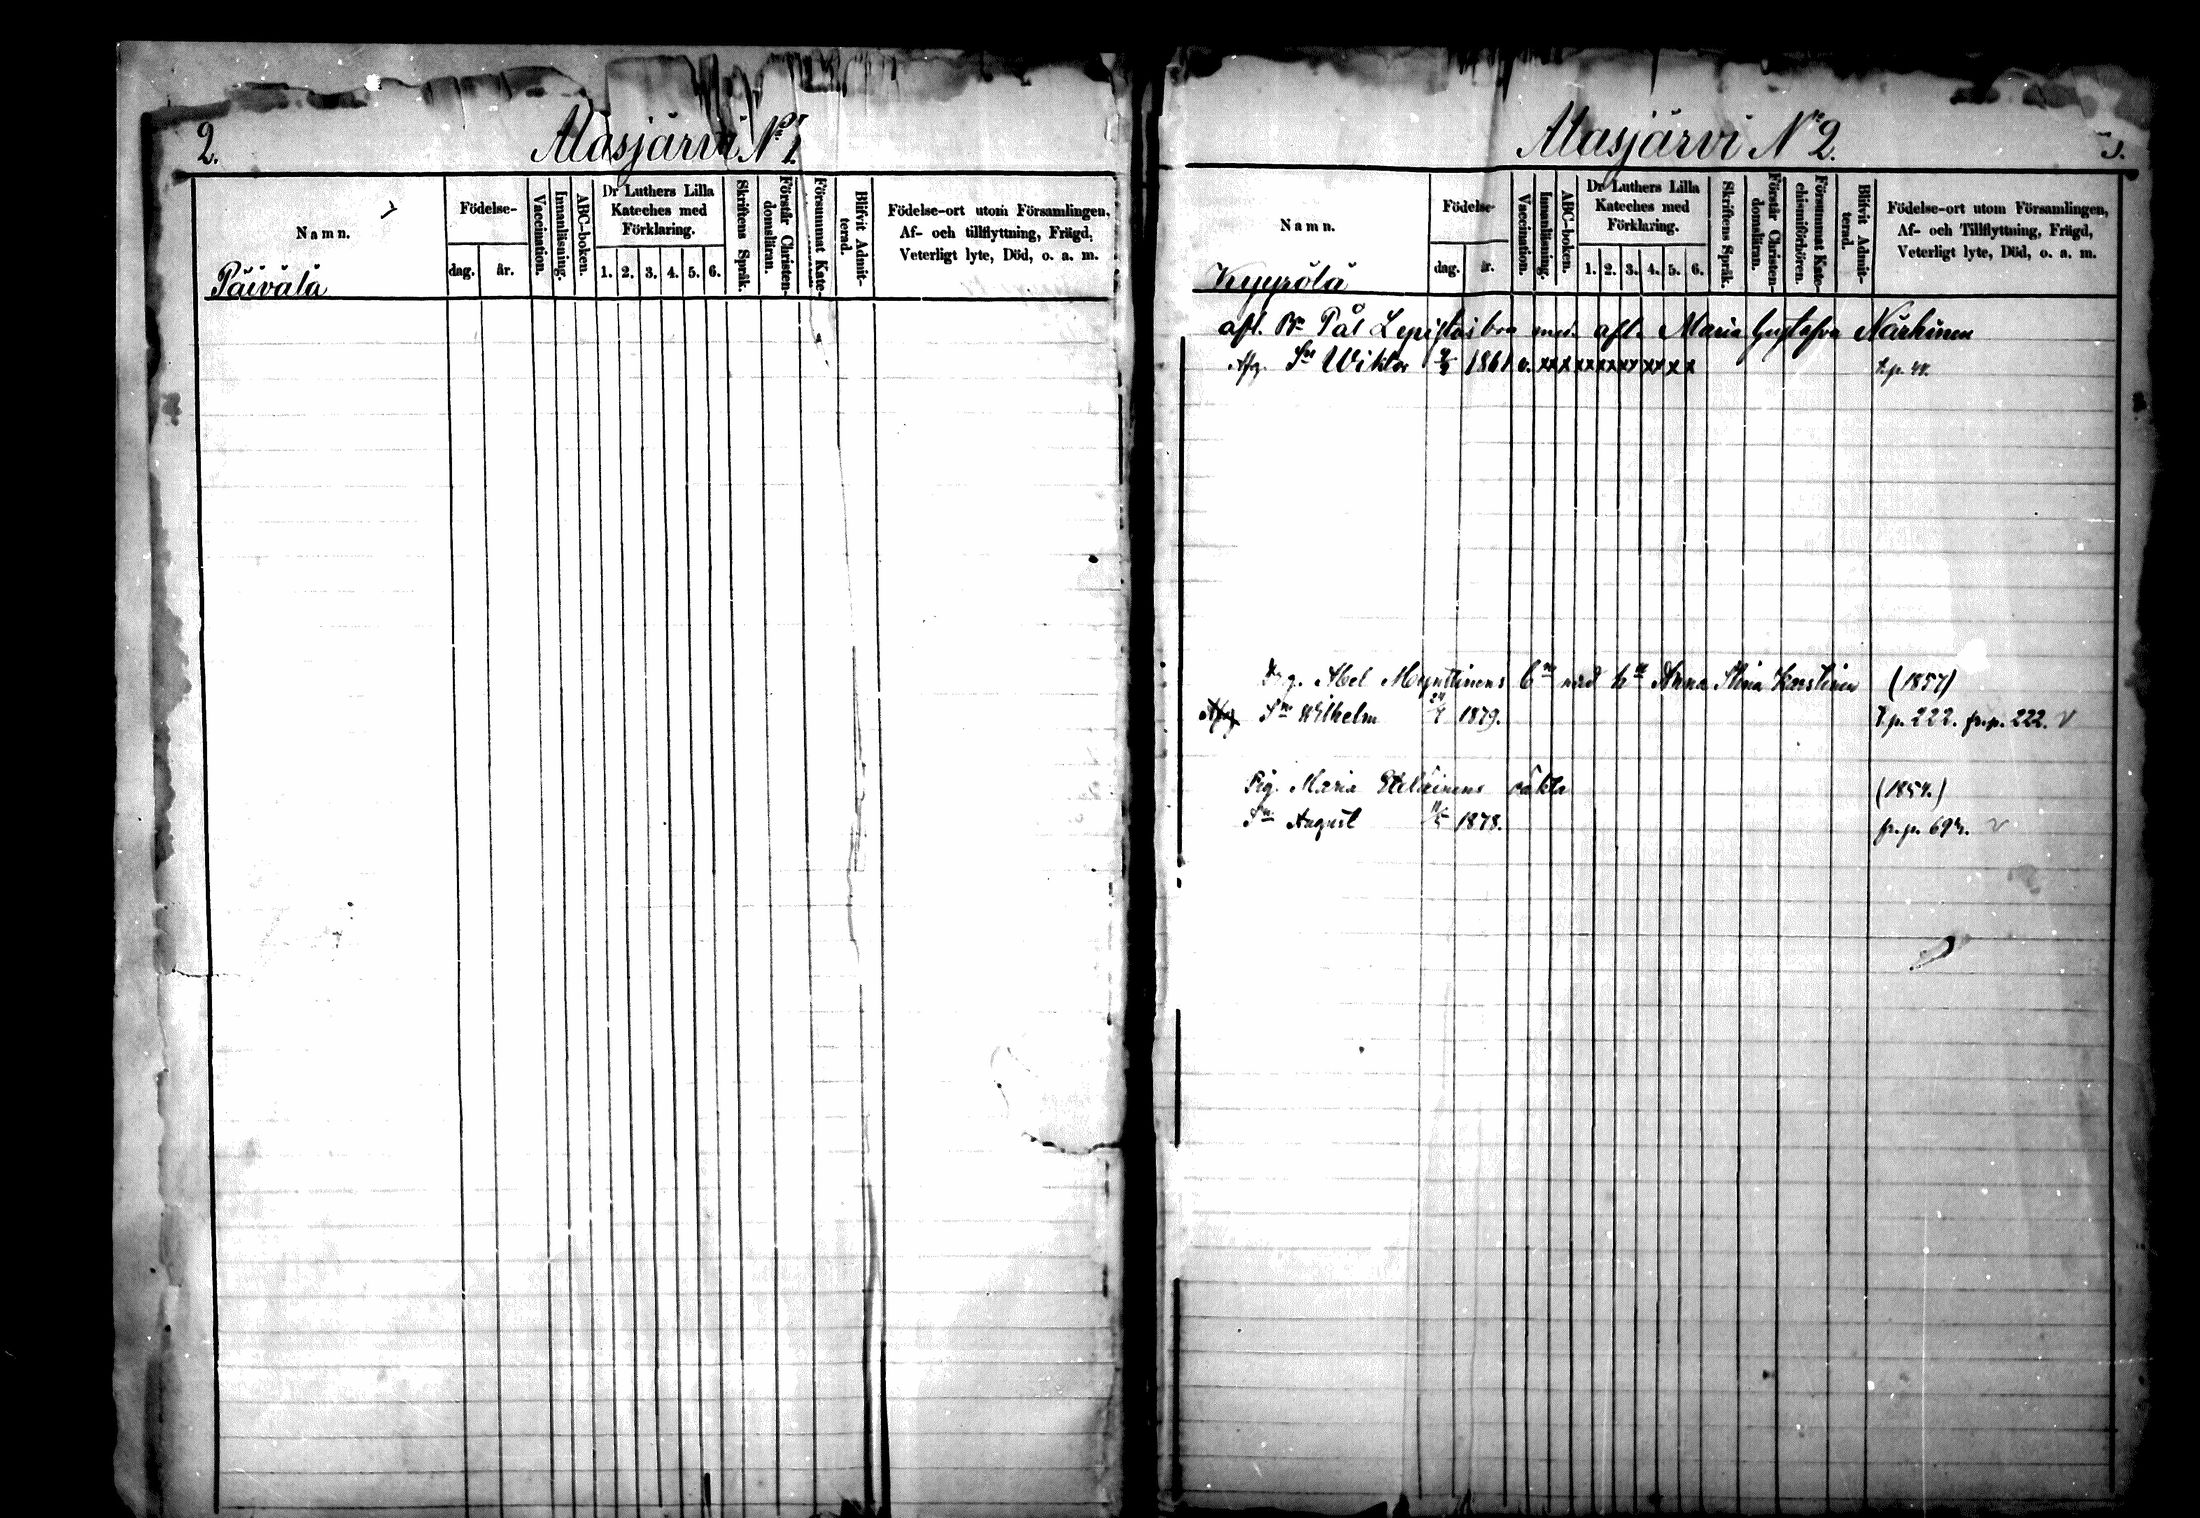 2.
Alasjärvi No 1.
Namn.
Päivälä
Födelse-
dag. år.
Vaccination.
Innanläsning.
ABC-boken.
Dr Luthers Lilla
Kateches med
Förklaring.
1. 2. 3. 4. 5. 6.
Skriftens Språk.
Förstår Christen-
domsläran.
Försummat Kate-
Blifvit Admit-
terad.
Födelse-ort utom Församlingen,
Af- och tillflyttning, Frägd,
Veterligt lyte, Död, o. a. m.
Alasjärvi No 2.
3.
Namn.
Kyyrölä
Födelse-
dag. år.
Vaccination.
Innanläsning.
ABC-boken.
Dr Luthers Lilla
Kateches med
Förklaring.
1. 2. 3. 4. 5. 6.
Skriftens Språk.
Förstår Christen-
domsläran.
Försummat Kate-
chismiförhören.
Blifvit Admit-
terad.
Födelse-ort utom Församlingen,
Af- och Tillflyttning, Frägd,
Veterligt lyte, Död, o. a. m.
afl. Bn Pål Lepistös brn med afl. Maria Gustafva Närhinen
Afg. Sn Wiktor 1861 v. xxx xxxxxx xx x
Abel Mynttinens bn med hu Anna Stina Karstinen (1857)
Afg. Sn Wilhelm 24/4 1879. T.p. 222. fr.p. 222. v
Pig. Maria oäkta (1854.)
Sn August 1878. fr.p. 694. v